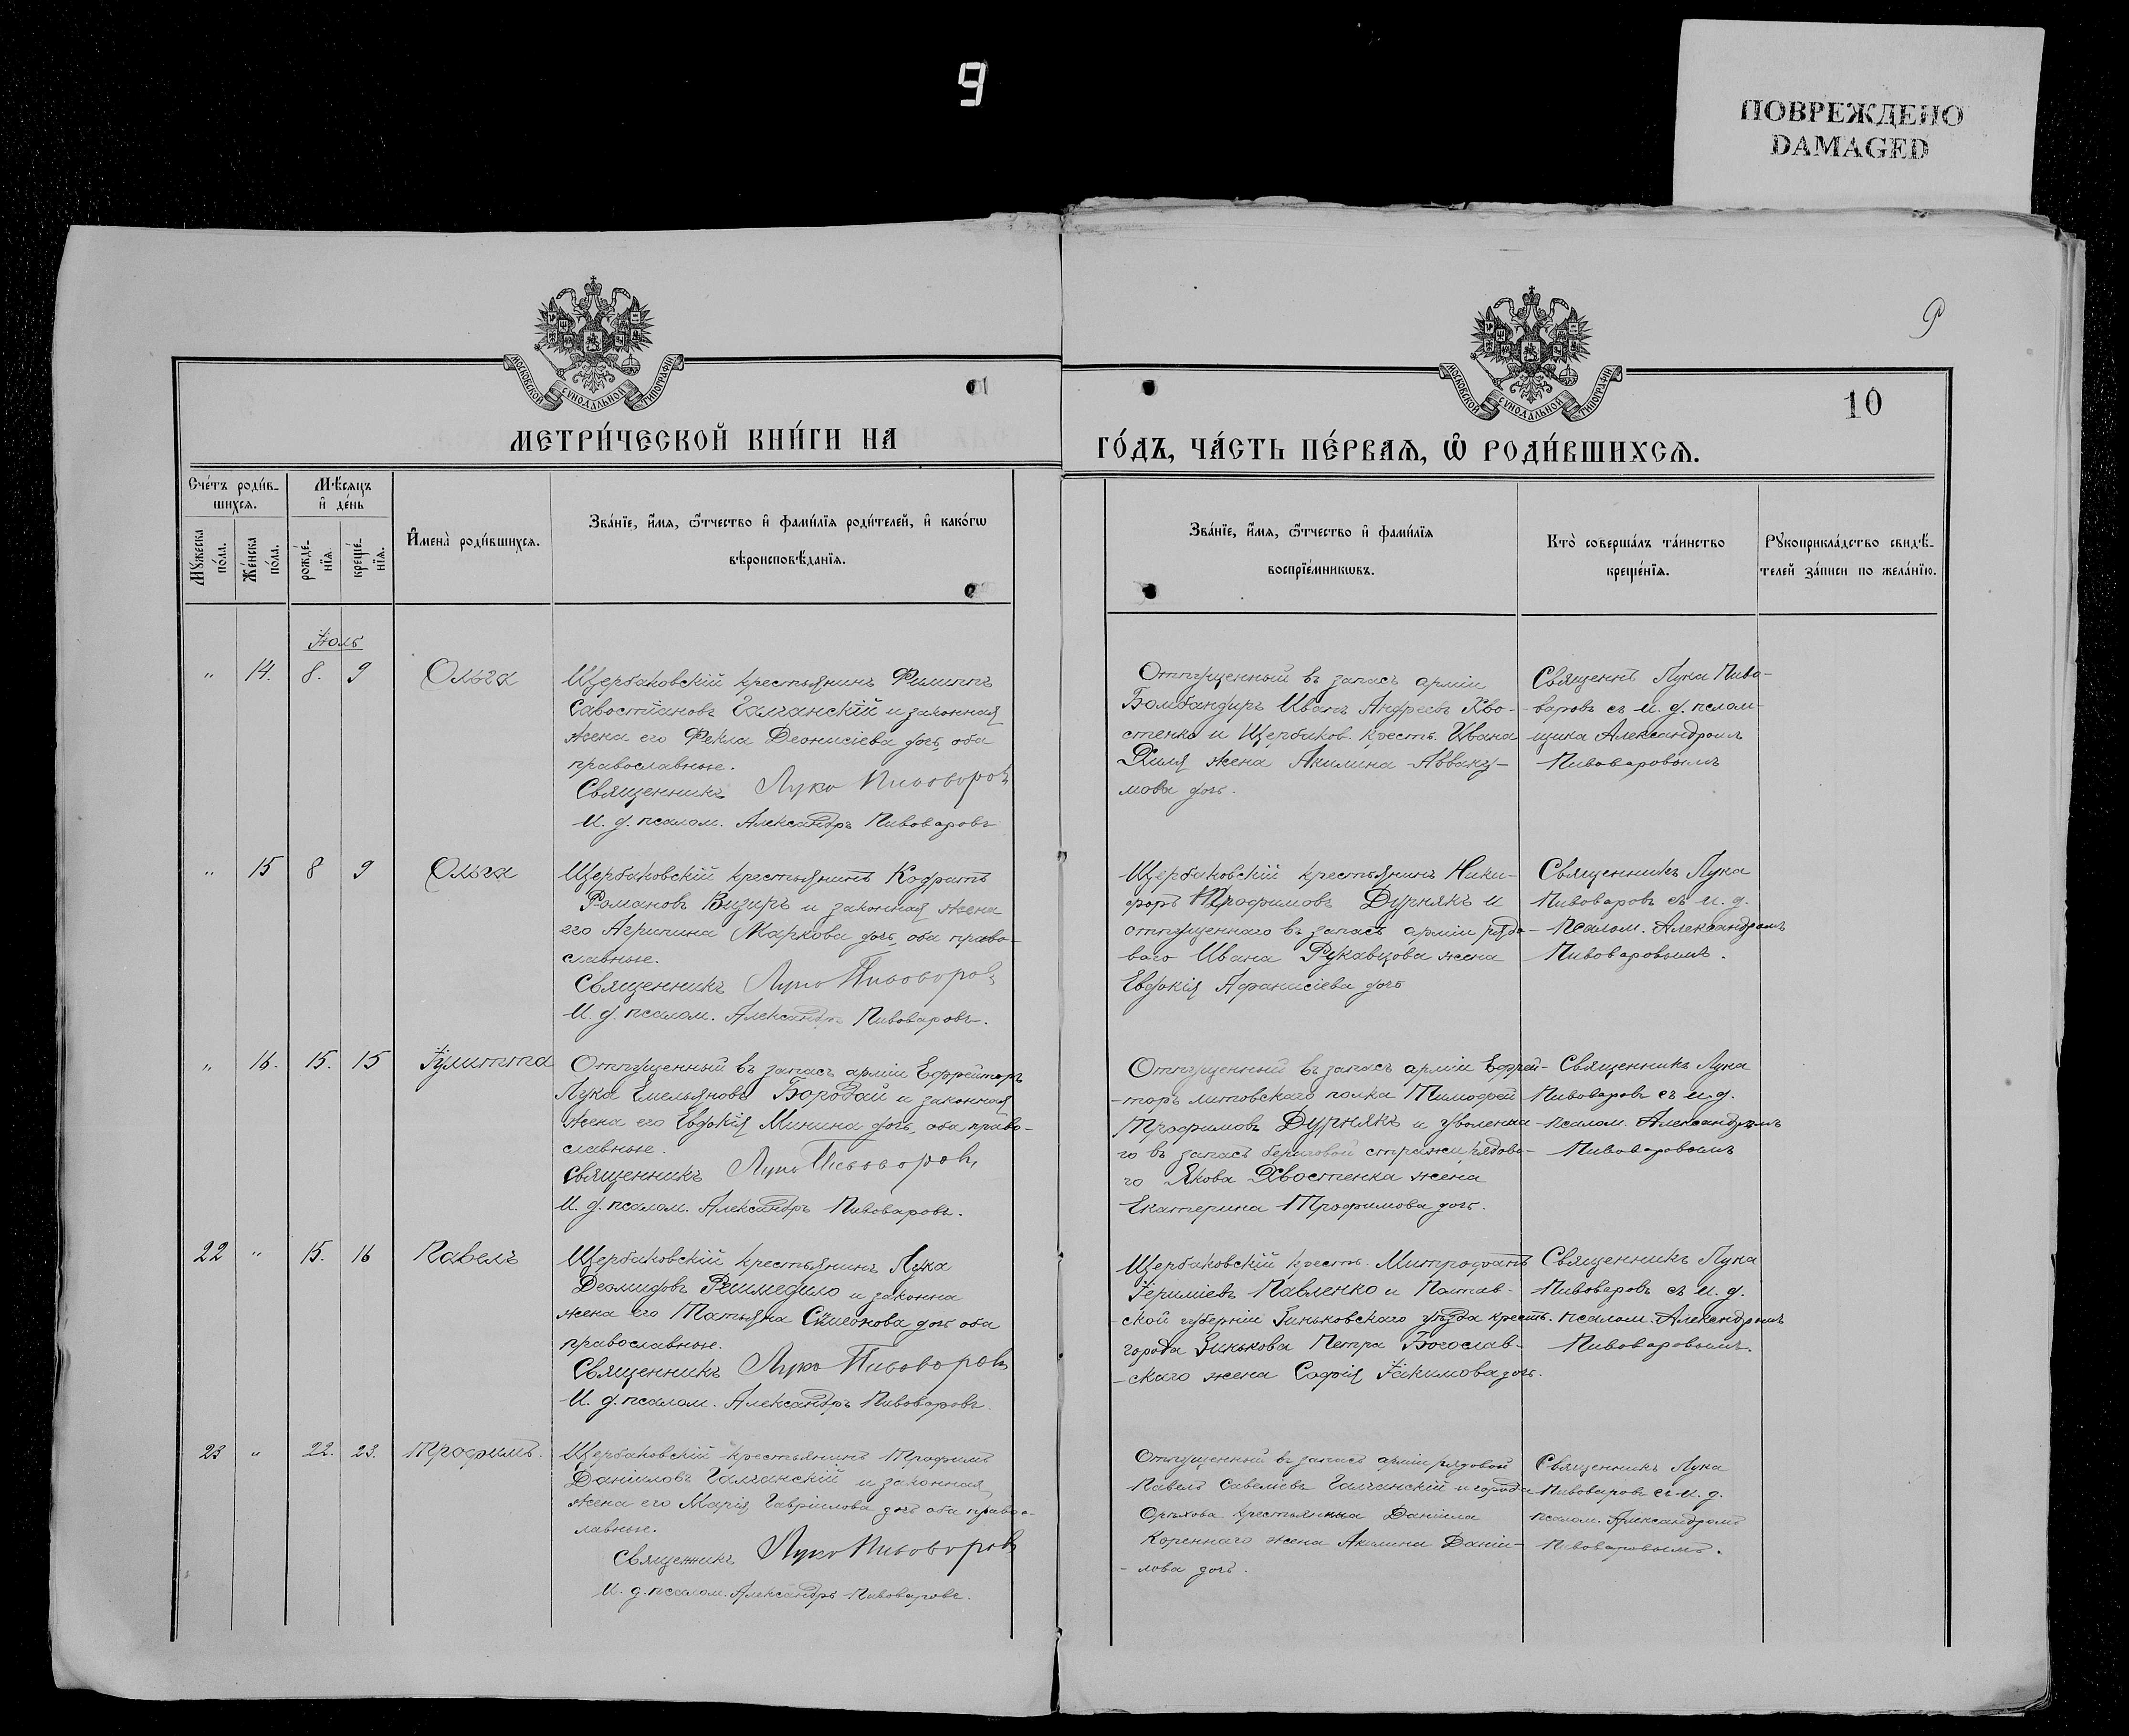 9
ПОВРЕЖДЕНО
DAMAGED
9
10
МОСКОВСКОЙ СѴНОДАЛЬНОЙ ТИПОГРАФІИ
МОСКОВСКОЙ СѴНОДАЛЬНОЙ ТИПОГРАФІИ
МЕТРИ́ЧЕСКОЙ КНИ́ГИ НА
ГО́ДЪ, ЧА́СТЬ ПЕ́РВАѦ, Ѽ РОДИ́ВШИХСѦ.
Сче́тъ роди́в-
шихсѧ.
Мѣ́сѧцъ
и҆ де́нь
Мꙋ́жеска по́ла.
Же́нска по́ла.
рожде́-
нїѧ.
креще́-
нїѧ.
И҆мена̀ роди́вшихсѧ.
Зва́нїе, и҆́мѧ, ѻ҆́тчество и҆ фами́лїѧ роди́телей, и҆ како́гѡ
вѣроисповѣ́данїѧ.
Зва́нїе, и҆́мѧ, ѻ҆́тчество и҆ фами́лїѧ
воспрїе́мникѡвъ.
Кто̀ соверша́лъ та́инство
креще́нїѧ.
Рꙋкоприкла́дство свидѣ́-
телей за́писи по жела́нїю.
Іюль
" 14. 8. 9 Ольга
Щербаковскій крестьянинъ Филиппъ
Савостіановъ Галчанскій и законная
жена его Фекла Деонисіева дочь оба
православные.
Священникъ Лука Пивоваровъ
И. д. псалом. Александръ Пивоваровъ
Отпущенный въ запасъ арміи
Бомбандиръ Иванъ Андреевъ Хво-
стенко и Щербаков. крестъ. Ивана
Диля жена Акилина Авваку-
мова дочь.
Священнъ Лука Пиво-
варовъ съ и. д. псалом-
щика Александромъ
Пивоваровымъ
" 15 8 9 Ольга
Щербаковскій крестьянинъ Кодратъ
Романовъ Визиръ и законная жена
его Агрипина Маркова дочь, оба право-
славные.
Священникъ Лука Пивоваровъ
И. д. псалом. Александръ Пивоваровъ.
Щербаковскій крестьянинъ Ники-
форъ Трофимовъ Дурнякъ и
отпущеннаго въ запасъ арміи рядо-
ваго Ивана Рукавцова жена
Евдокія Афанисіева дочь
Священникъ Лука
Пивоваровъ съ и. д.
Псалом. Александромъ
Пивоваровымъ.
" 16. 15. 15 Іулитта
Отпущенный въ запасъ арміи Ефрейторъ
Лука Емельяновъ Бородай и законная
жена его Евдокія Минина дочь, оба право-
славные.
Священникъ Лука Пивоваровъ,
И. д. псалом. Александръ Пивоваровъ.
Отпущенный въ запасъ арміи Ефрей-
-торъ литовскаго полка Тимофей
Трофимовъ Дурнякъ и уволенна-
го въ запасъ береговой стражи рядова-
го Якова Хвостенка жена
Екатерина Трофимова дочь.
Священникъ Лука
Пивоваровъ съ и. д.
псалом. Александромъ
Пивоваровымъ
22 " 15. 16 Павелъ
Щербаковскій крестьянинъ Лука
Деомидовъ Решмедило и законна
жена его Татьяна Симеонова дочь оба
православные.
Священникъ Лука Пивоваровъ
И. д. псалом. Александръ Пивоваровъ.
Щербаковскій крестъ. Митрофанъ
Іеримієвъ Павленко и Полтав-
-ской губерніи Зиньковскаго уѣзда крестъ.
города Зинькова Петра Богослав-
-скаго жена Софія Іакимова дочь.
Священникъ Лука
Пивоваровъ съ и. д.
псалом. Александромъ
Пивоваровымъ.
23 " 22. 23. Трофимъ.
Щербаковскій крестьянинъ Трофимъ
Даніиловъ Галчанскій и законная
жена его Марія Гавріилова дочь оба право-
лавные.
Священникъ Лука Пивоваровъ
И. д. псалом. Александръ Пивоваровъ.
Отпущенный въ запасъ арміи рядовой
Павелъ Савеліевъ Галчанскій и города
Орѣхова крестьянина Даніила
Кореннаго жена Акилина Даніи-
-лова дочь.
Священникъ Лука
Пивоваровъ съ и. д.
псалом. Александромъ
Пивоваровымъ.